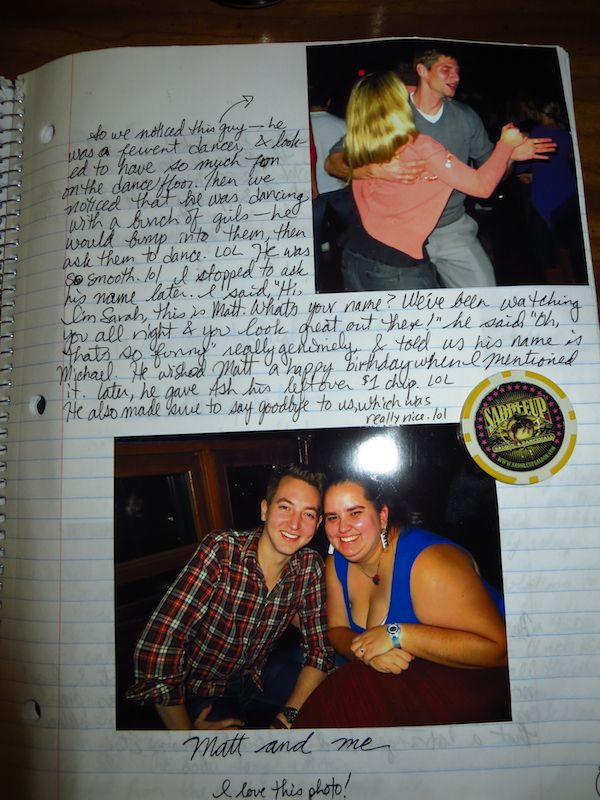 So we noticed this guy — he
was a fervent dancer & look-
ed to have so much fun
on the dance floor. Then we
noticed that he was dancing
with a bunch of girls — he
would bump into them, then
ask them to dance. LOL He was
so smooth. lol I stopped to ask
his name later. I said "Hi,
I'm Sarah, this is Matt. What's your name? We've been watching
you all night & you look great out there!" he said "Oh,
that's so funny" really genuinely & told us his name is
Michael. He wished Matt a happy birthday when I mentioned
it. Later, he gave Ash his leftover $1 chip. LOL
He also made sure to say goodbye to us, which was
really nice. lol
SADDLE UP
Matt and me
I love this photo!